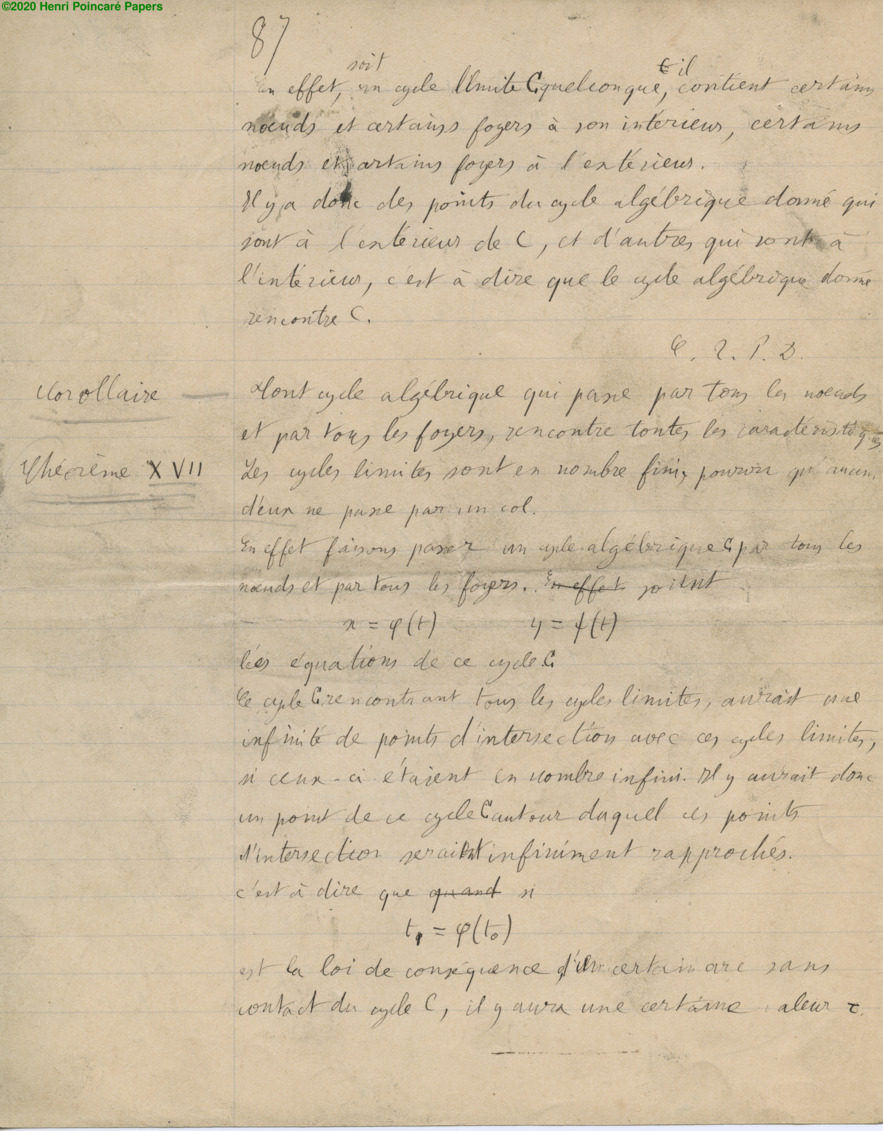 ©2020 Henri Poincaré Papers
87
En effet, soit un cycle limite C quelconque, il contient certains
nœuds et certains foyers à son intérieur, certains
nœuds et certains foyers à l'extérieur.
Il y a donc des points du cycle algébrique donné qui
sont à l'extérieur de C, et d'autres qui sont à
l'intérieur, c'est à dire que le cycle algébrique donné
rencontre C.
C. Q. F. D.
Corollaire — Tout cycle algébrique qui passe par tous les nœuds
et par tous les foyers, rencontre toutes les caractéristiques
Théorème XVII Les cycles limites sont en nombre fini, pourvu qu'aucun
d'eux ne passe par un col.
En effet faisons passer un cycle algébrique C par tous les
nœuds et par tous les foyers. En effet soient
x = φ(t) y = ψ(t)
les équations de ce cycle C
Ce cycle C rencontrant tous les cycles limites, aurait une
infinité de points d'intersection avec ces cycles limites,
si ceux-ci étaient en nombre infini. Il y aurait donc
un point de ce cycle C autour duquel ces points
d'intersection seraient infiniment rapprochés.
c'est à dire que quand si
t₁ = φ(t₀)
est la loi de conséquence d'un certain arc sans
contact du cycle C, il y aura une certaine valeur τ